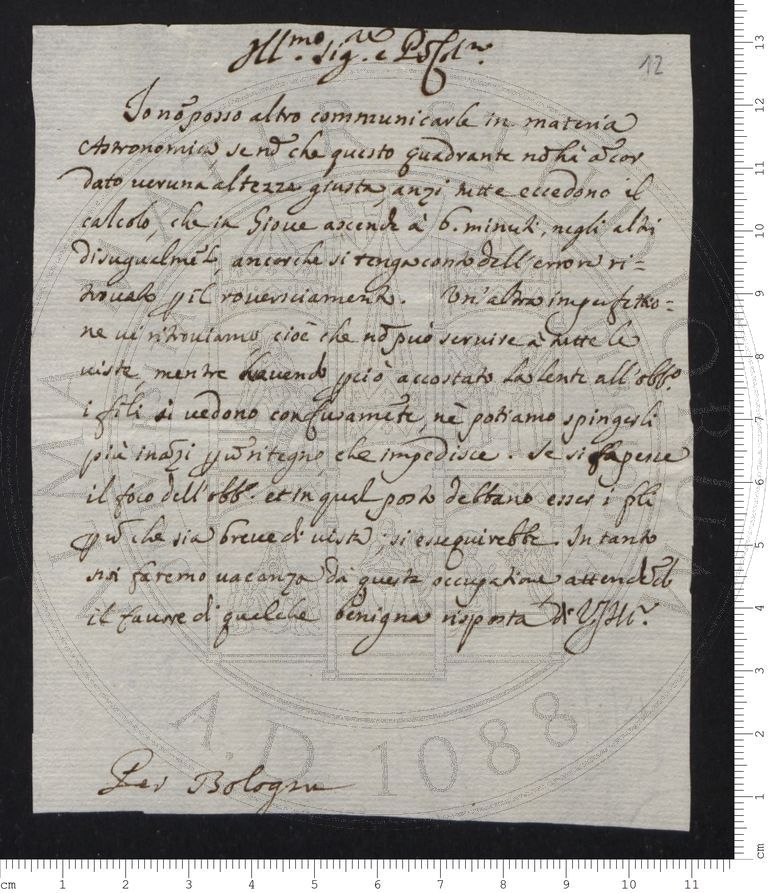 Ill.mo Sig.re e P
12
Io nõ posso altro communicarle in materia
Astronomica, se nõ che questo quadrante nõ hà ãcor
dato veruna altezza giusta, anzi tutte eccedono il
calcolo, che in Giove ascende à 6. minuti, negli altri
disugualmẽte, ancorche si tenga conto dell'errore ri=
trovato p il roversciamento. Un'altra imperfettio=
ne vi ritroviamo, cioè che nõ può servire à tutte le
viste, mentre havendo p ciò accostato la lente all'obb.o
i fili si vedono confusamẽte, nè potiamo spingerli
più inãzi p ũ ritegno, che impedisce. Se si sapesse
il foco dell'obb.o et in qual posto debbano esser i fili
p ũ che sia breve di vista, si eseguirebbe. In tanto
noi faremo vacanza da questa occupatione attendẽdo
il favore di qualche benigna risposta di V.S. Ill.
Per Bologna
A.D. 1088
cm 1 2 3 4 5 6 7 8 9 10 11
13
12
11
10
9
8
7
6
5
4
3
2
1
cm